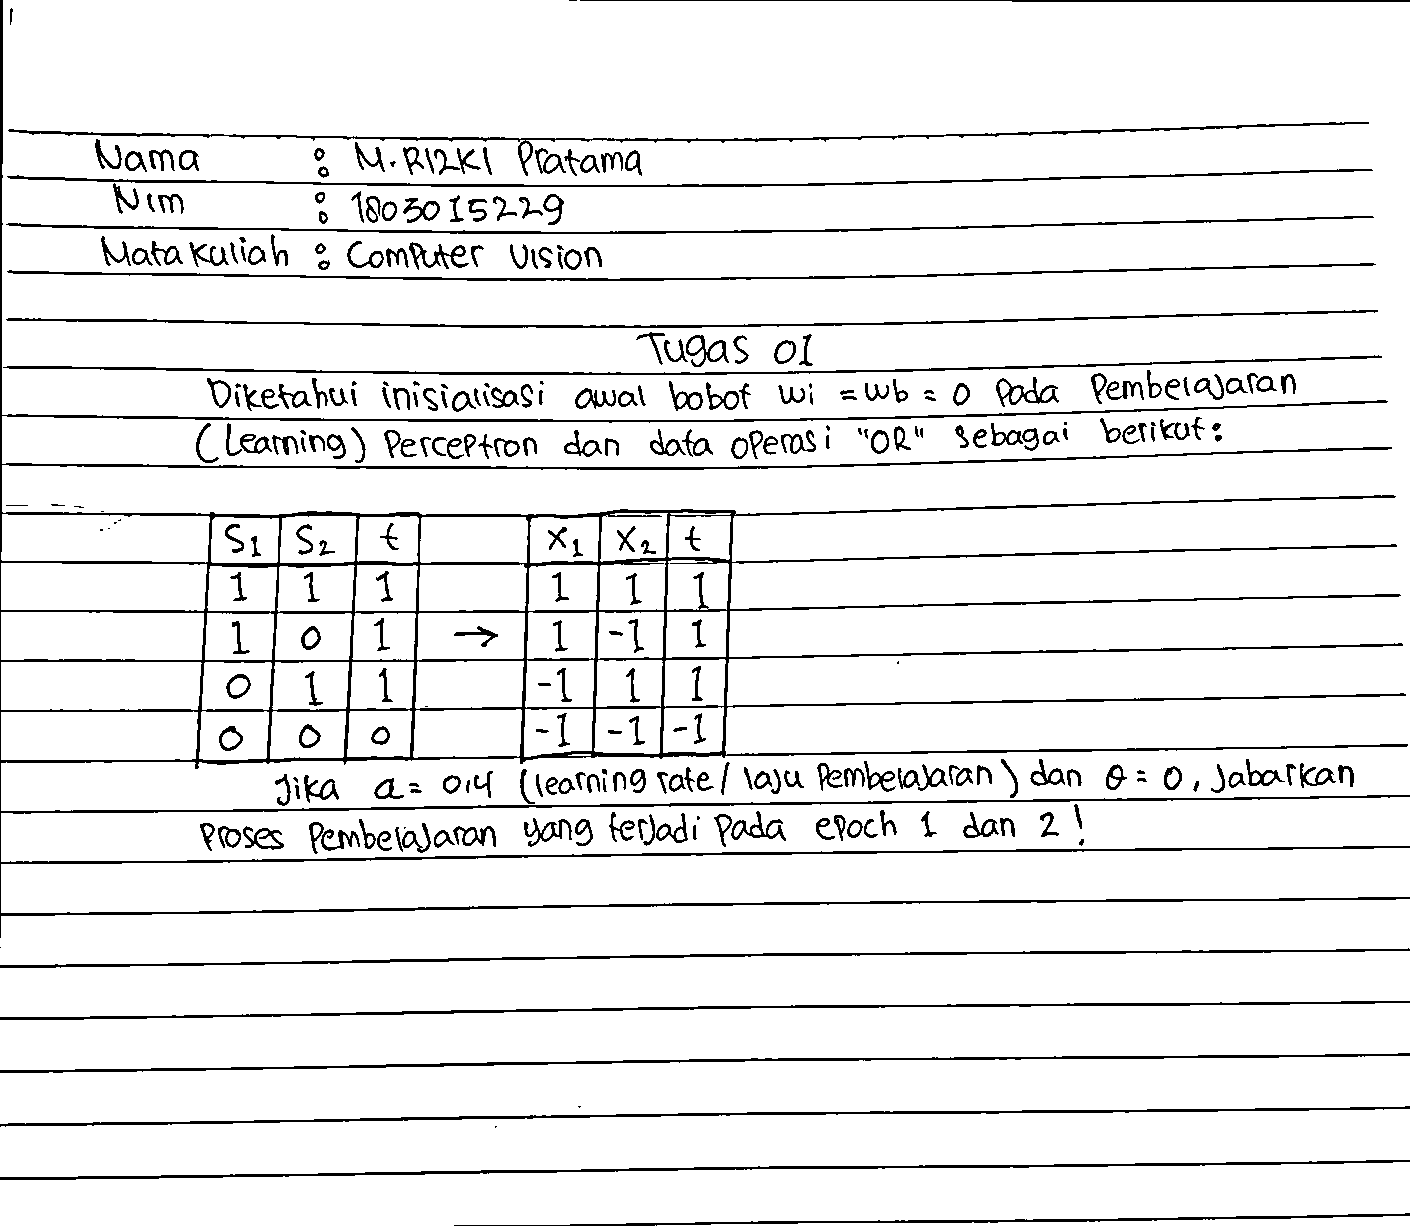 Nama : M. RIZKI Pratama
Nim : 1803015229
Mata Kuliah : Computer Vision
Tugas 01
Diketahui inisialisasi awal bobot wi = wb = 0 Pada Pembelajaran
(Learning) Perceptron dan data operasi "OR" sebagai berikut:
S1 S2 t X1 X2 t
1 1 1 1 1 1
1 0 1 → 1 -1 1
0 1 1 -1 1 1
0 0 0 -1 -1 -1
Jika a = 0,4 (learning rate / laju Pembelajaran) dan θ = 0, Jabarkan
Proses Pembelajaran yang terjadi Pada epoch 1 dan 2!